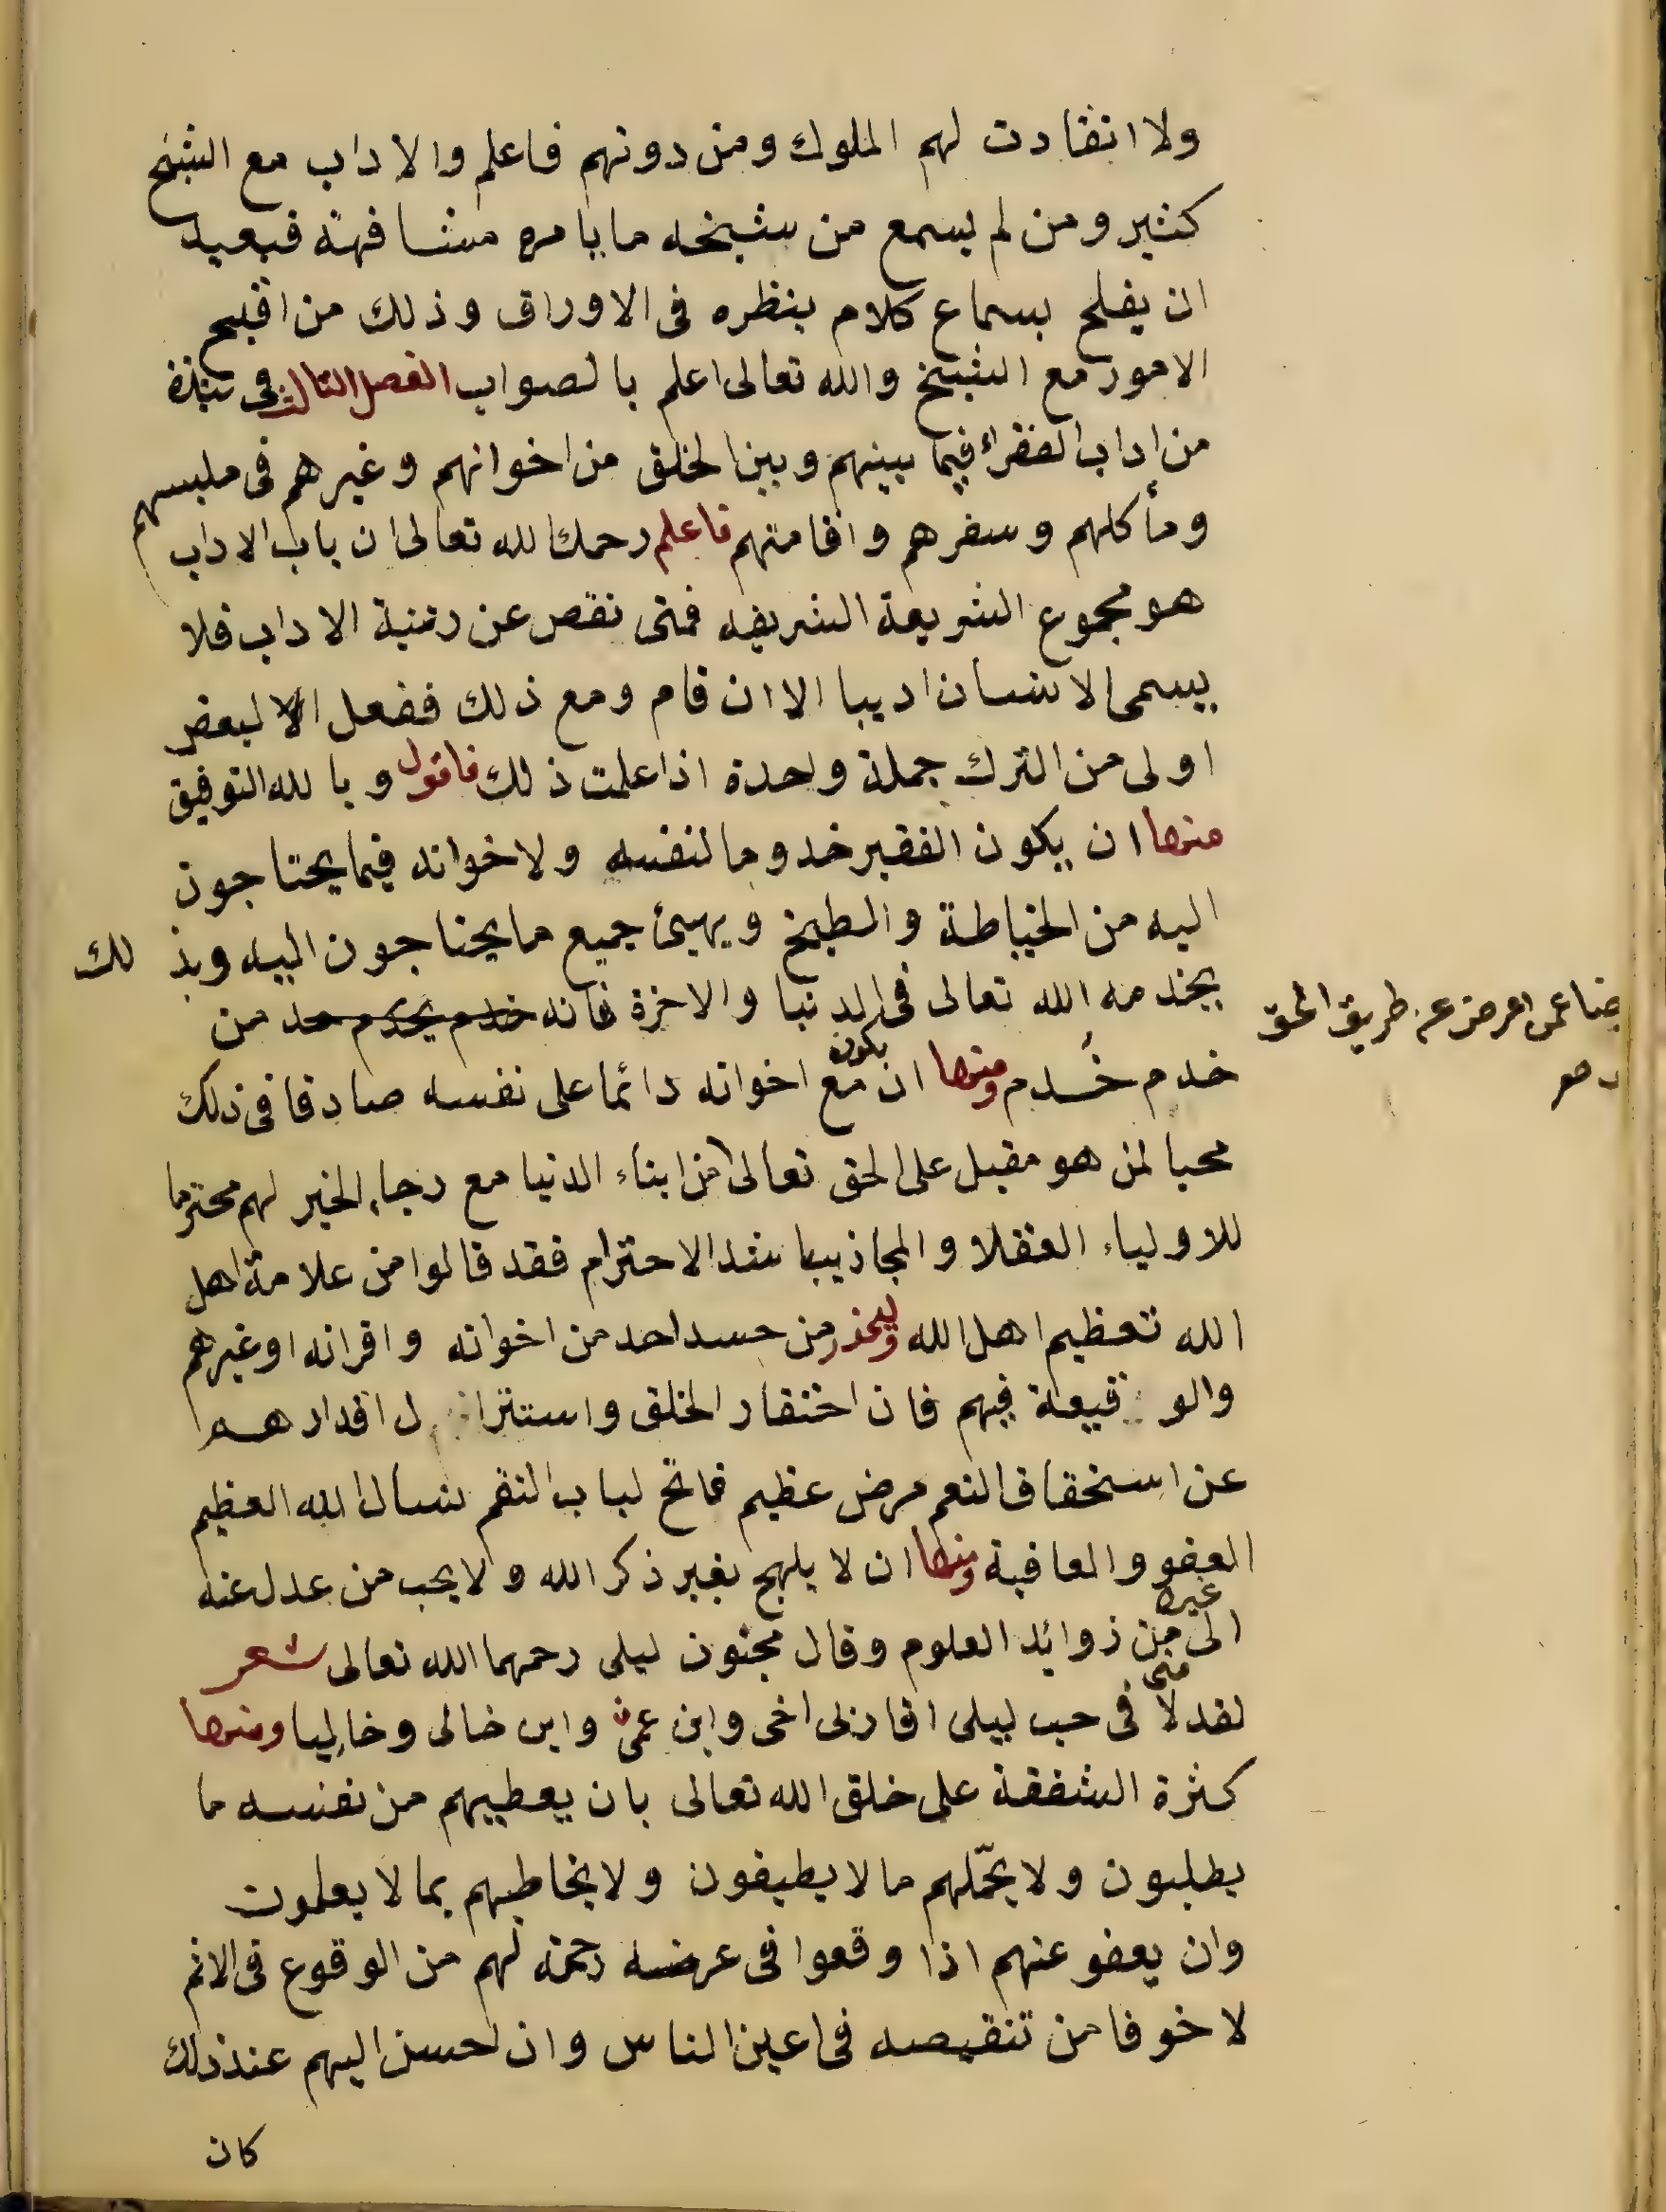 ولا انقادت لهم الملوك ومن دونهم فاعلم والاداب مع الشيخ
كثير ومن لم يسمع من شيخه ما يامره مشافهة فبعيد
ان يفلح بسماع كلام ينظره فى الاوراق وذلك من اقبح
الامور مع الشيخ والله تعالى اعلم بالصواب الفصل الثالث فى نبذة
من اداب الفقراء فيما بينهم وبين الخلق من اخوانهم وغيرهم فى ملبسهم
ومأكلهم وسفرهم واقامتهم فاعلم رحمك الله تعالى ان باب الاداب
هو مجموع الشريعة الشريفه فمتى نقص عن رتبة الاداب فلا
يسمى الانسان اديبا الا ان قام ومع ذلك ففعل البعض
اولى من الترك جملة واحدة اذا علمت ذلك فاقول وبالله التوفيق
منها ان يكون الفقير خدوما لنفسه ولاخوانه فيما يحتاجون
اليه من الخياطة والطبخ ويهيئ جميع ما يحتاجون اليه وبذلك
يخدمه الله تعالى فى الدنيا والاخرة فانه من
خدم خُدم ومنها ان يكون مع اخوانه دائما على نفسه صادقا فى ذلك
محبا لمن هو مقبل على الحق تعالى من ابناء الدنيا مع رجاء الخير لهم محترما
عمن اعرض عن طريق الحق
للاولياء العقلا والمجاذيب اشد الاحترام فقد قالوا من علامة اهل
الله تعظيم اهل الله وليحذر من حسد احد من اخوانه واقرانه او غيرهم
والوقيعة فيهم فان احتقار الخلق واستنزال اقدارهم
عن استحقاق النعم مرض عظيم فاتح لباب النقم نسال الله العظيم
العفو والعافية ومنها ان لا يلهج بغير ذكر الله ولا يحب من عدل عنه
الى غيره من زوائد العلوم وقال مجنون ليلى رحمهما الله تعالى شعر
لقد لامنى فى حب ليلى اقاربى اخى وابن عمى وابن خالى وخاليا ومنها
كثرة الشفقة على خلق الله تعالى بان يعطيهم من نفسه ما
يطلبون ولا يحمّلهم ما لا يطيقون ولا يخاطبهم بما لا يعلمون
وان يعفو عنهم اذا وقعوا فى عرضه رحمة لهم من الوقوع فى الاثم
لا خوفا من تنقيصه فى اعين الناس وان احسن اليهم عند ذلك
كان